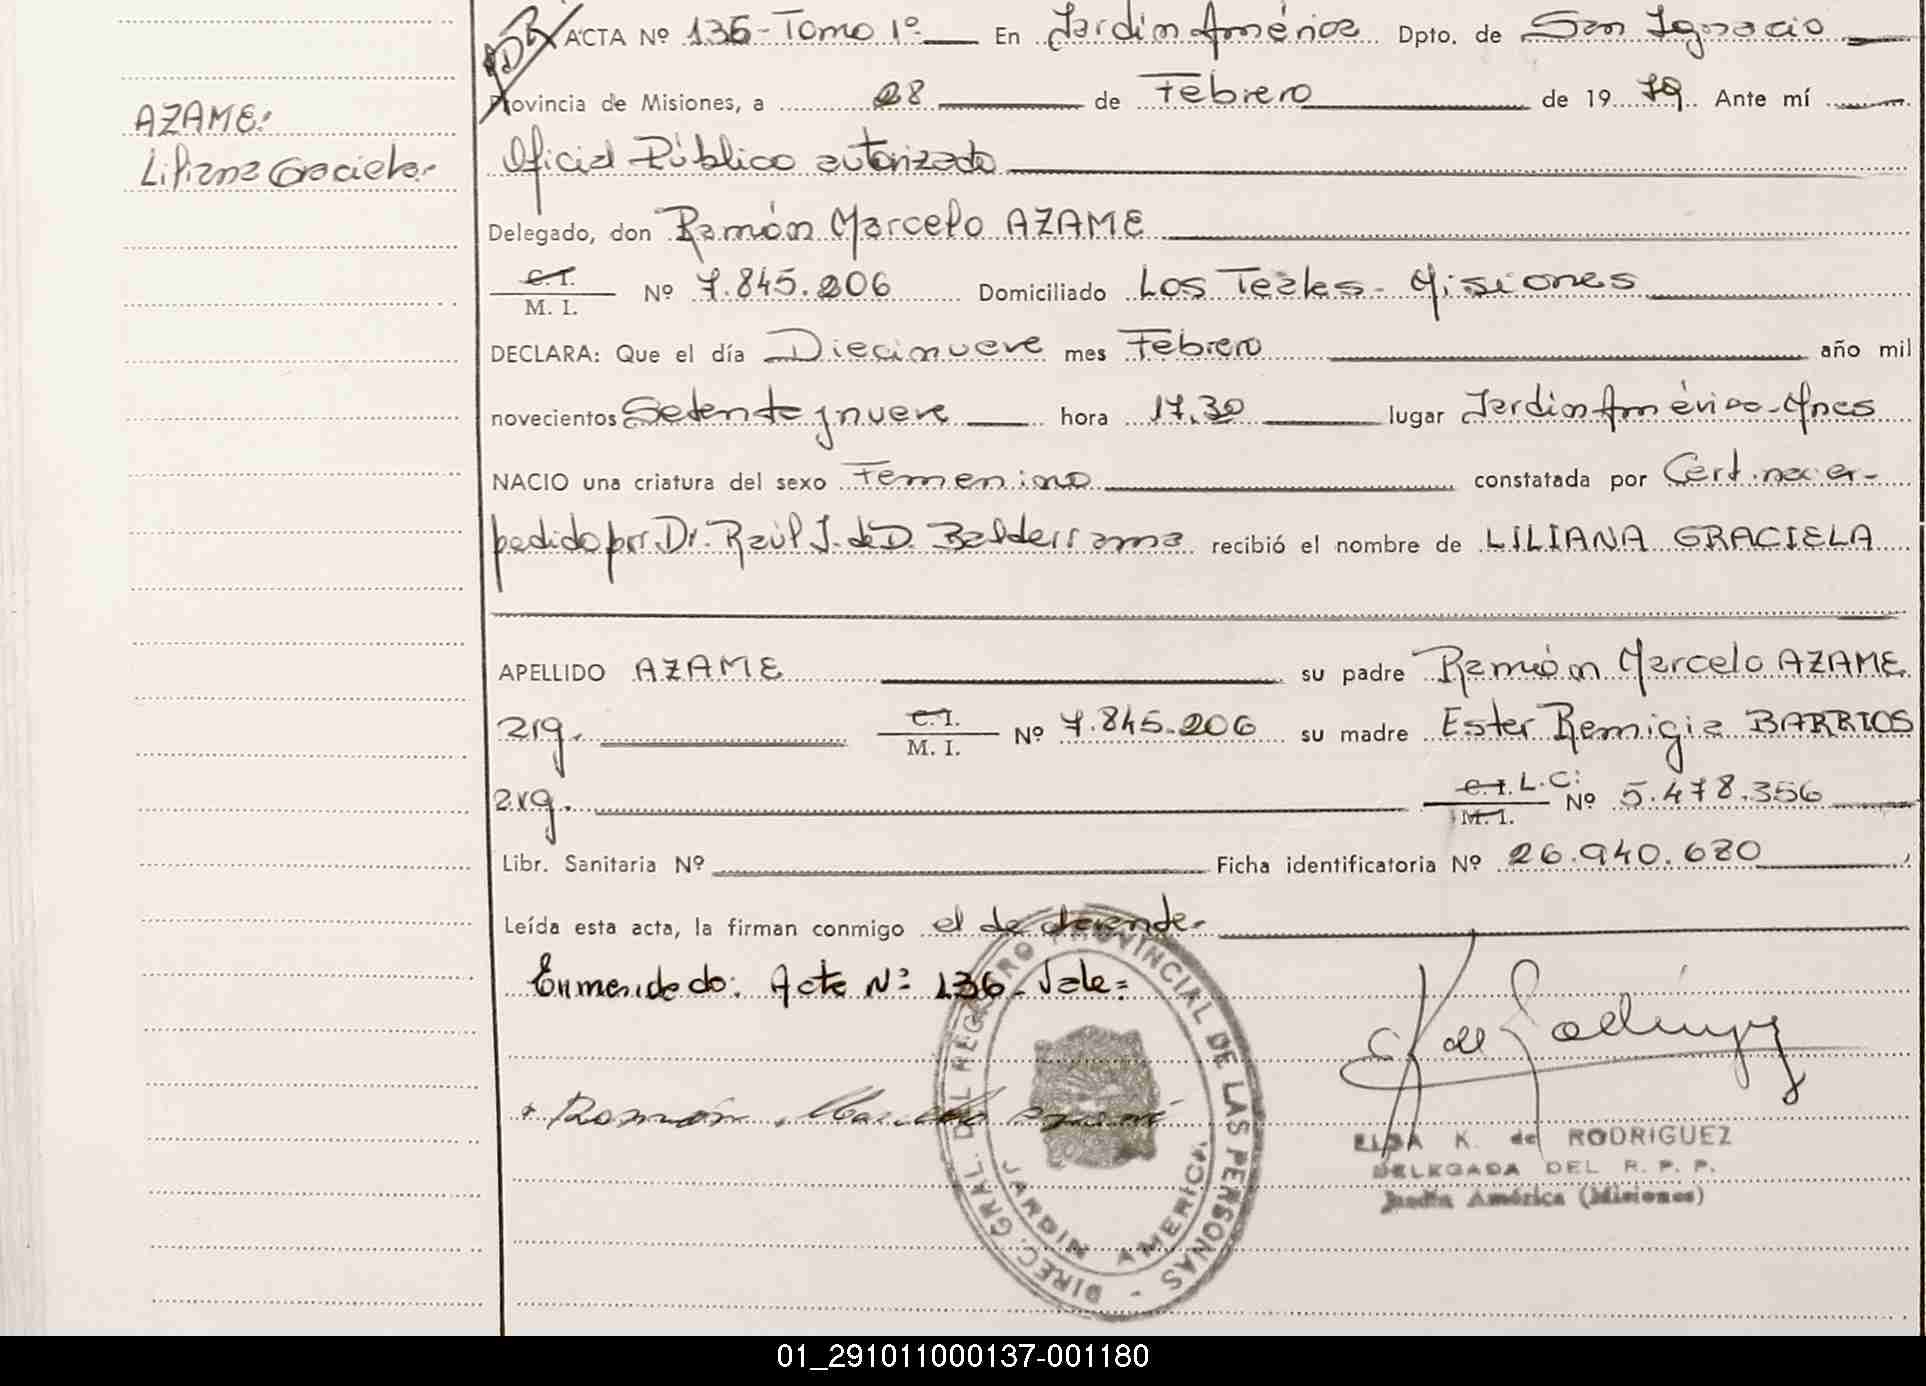 AZAME:
Liliana Graciela.-
ACTA Nº 136 - Tomo 1º En Jardín América Dpto. de San Ignacio
Provincia de Misiones, a 28 de Febrero de 19 79 Ante mí
Oficial Público autorizado
Delegado, don Ramón Marcelo AZAME
C. I.
M. I.
Nº 7.845.206 Domiciliado Los Teales - Misiones
DECLARA: Que el día Diecinueve mes Febrero año mil
novecientos Setenta y nueve hora 17,30 lugar Jardín América - Mnes
NACIO una criatura del sexo Femenino constatada por Cert. nac. ex-
pedido por Dr. Raúl J. de D. Balderrama recibió el nombre de LILIANA GRACIELA
APELLIDO AZAME su padre Ramón Marcelo AZAME
arg. C. I. M. I. Nº 7.845.206 su madre Ester Remigia BARRIOS
arg. C. I. L.C: M. I. Nº 5.478.356
Libr. Sanitaria Nº Ficha identificatoria Nº 26.940.620
Leída esta acta, la firman conmigo el declarante.
Enmendado: Acta Nº 136 - Vale=
Ramón Marcelo Azamé
DIREC. GRAL. DEL REGISTRO PROVINCIAL DE LAS PERSONAS -
JARDIN AMERICA
ELSA K. de RODRIGUEZ
DELEGADA DEL R. P. P.
Jardín América (Misiones)
01_291011000137-001180